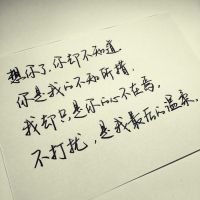 想你了，你却不知道
你是我的不知所措，
我却只是你的心不在焉，
不打扰，是我最后的温柔，